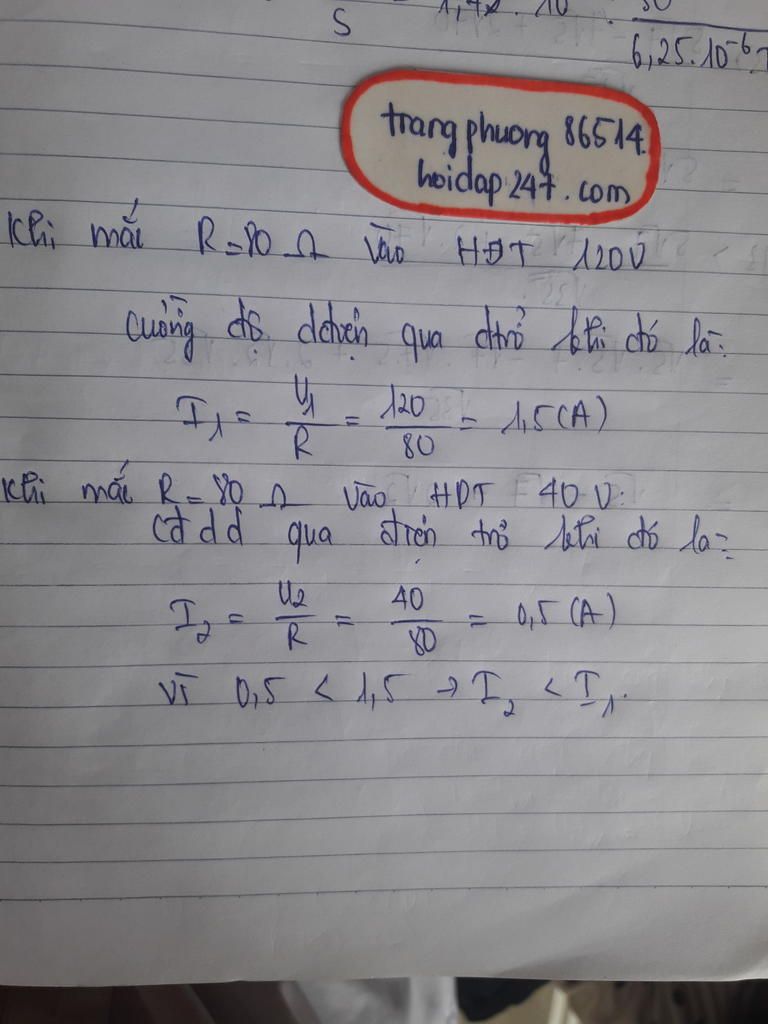 S
1,72.10
6,25.10⁻⁶
trangphuong 86514.
hoidap247.com
Khi mắc R=80 Ω vào HĐT 120V
cường độ dđiện qua đtrở khi đó là:
I₁ = U₁/R = 120/80 = 1,5(A)
Khi mắc R=80 Ω vào HĐT 40V.
Cđ d đ qua điện trở khi đó là:
I₂ = U₂/R = 40/80 = 0,5 (A)
Vì 0,5 < 1,5 → I₂ < I₁.